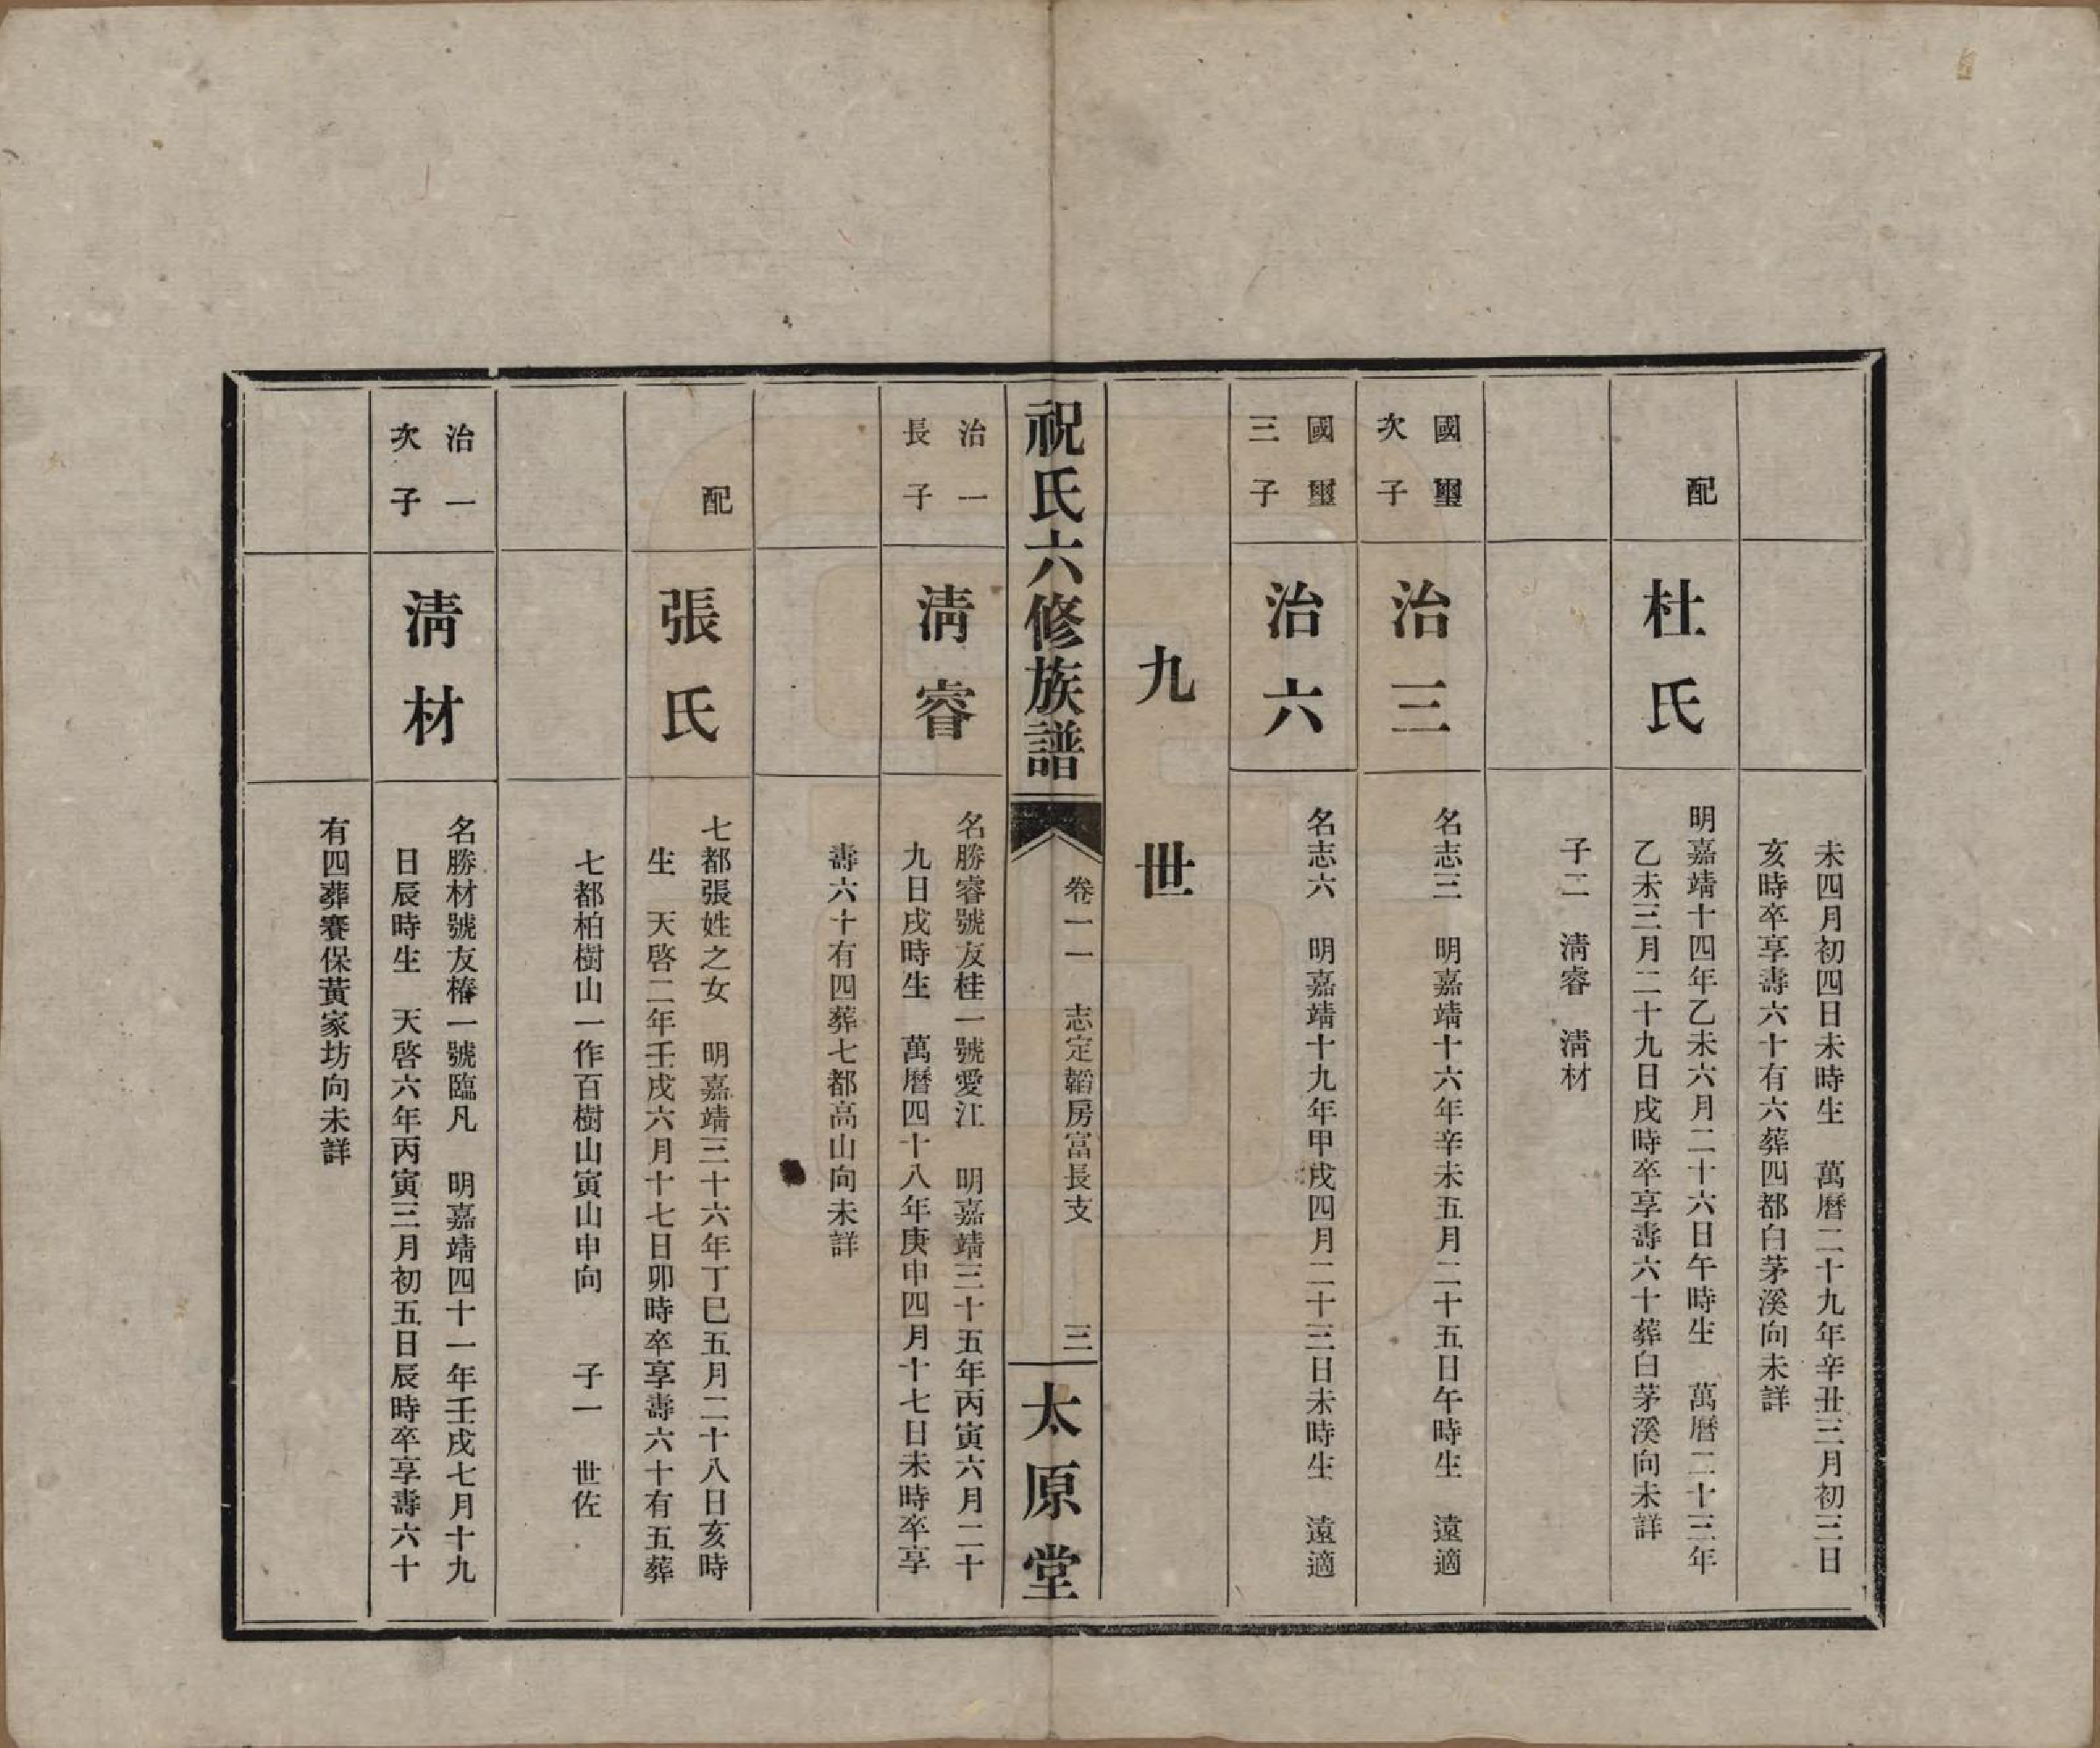 未四月初四日未時生　萬曆二十九年辛丑三月初三日
亥時卒享壽六十有六葬四都白茅溪向未詳
配
杜氏
明嘉靖十四年乙未六月二十六日午時生　萬曆二十三年
乙未三月二十九日戌時卒享壽六十葬白茅溪向未詳
子二　淸睿　淸材
國璽
次子
治三
名志三　明嘉靖十六年辛未五月二十五日午時生　遠適
國璽
三子
治六
名志六　明嘉靖十九年甲戌四月二十三日未時生　遠適
九世
祝氏六修族譜
卷一一　志定韜房富長支　三
太原堂
治一
長子
淸睿
名勝睿號友桂一號愛江　明嘉靖三十五年丙寅六月二十
九日戌時生　萬曆四十八年庚申四月十七日未時卒享
壽六十有四葬七都高山向未詳
配
張氏
七都張姓之女　明嘉靖三十六年丁巳五月二十八日亥時
生　天啓二年壬戌六月十七日卯時卒享壽六十有五葬
七都柏樹山一作百樹山寅山申向　子一　世佐
治一
次子
淸材
名勝材號友椿一號臨凡　明嘉靖四十一年壬戌七月十九
日辰時生　天啓六年丙寅三月初五日辰時卒享壽六十
有四葬賽保黃家坊向未詳